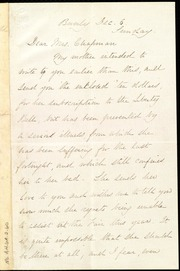 Beverly Dec. 6,
Sunday
Dear Mrs. Chapman
My mother intended to
write to you earlier than this, and
send you the enclosed ten dollars,
for her subscription to the Liberty
Bell, but has been prevented by
a severe illness from which she
is suffering for the last
fortnight, and which still confines
her to her bed. She sends her
love to you and wishes me to tell you
how much she regrets being unable
to assist at the Fair this year. It
is quite impossible that she should
be there at all, and I fear, even